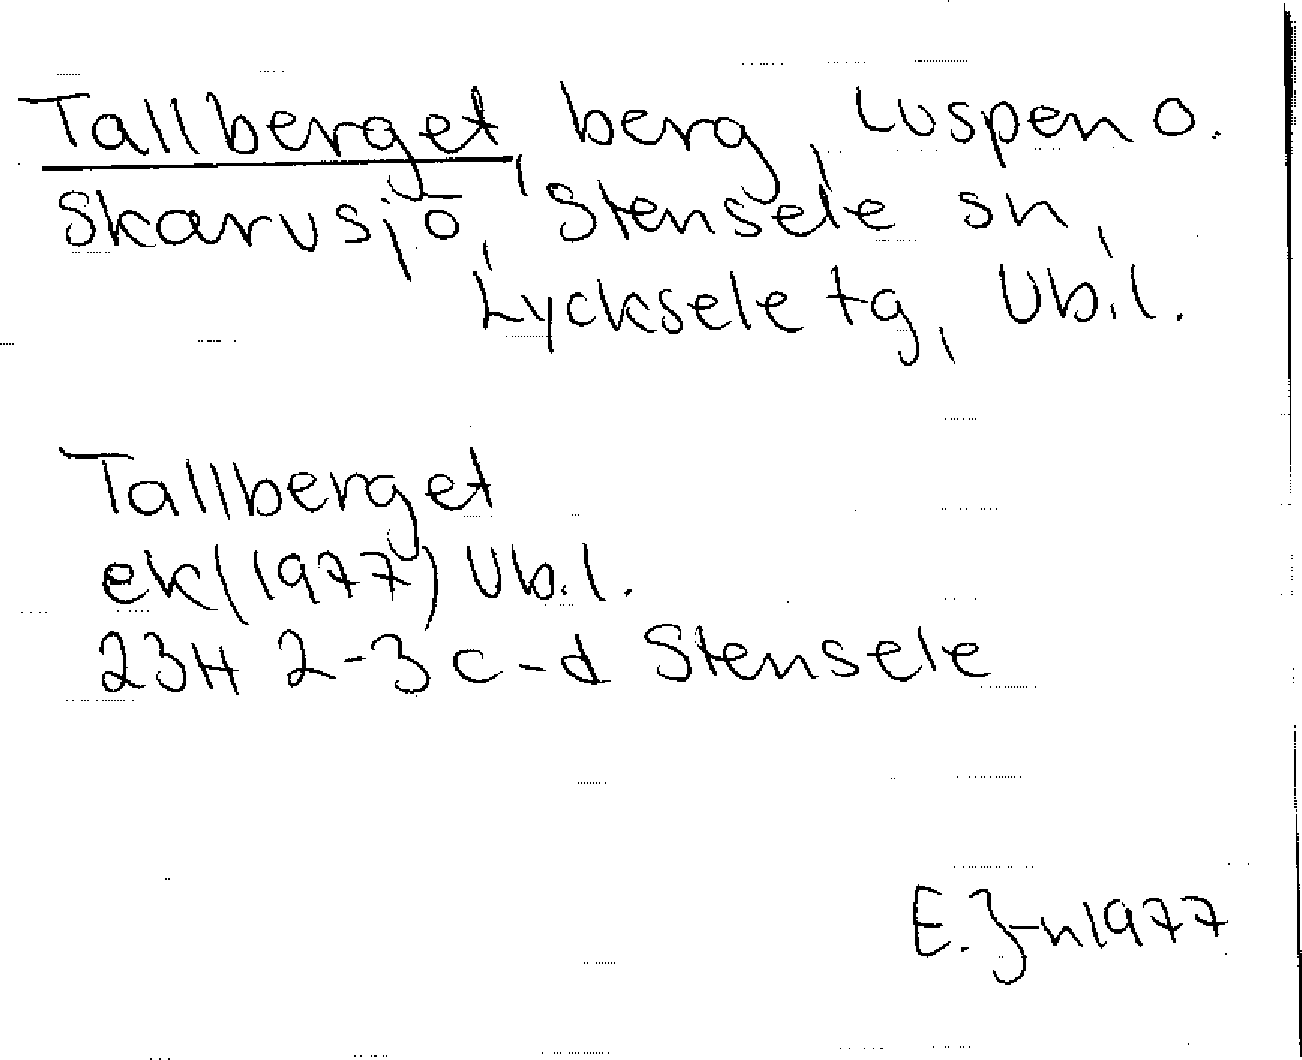 Tallberget, berg, Luspen o.
Skarvsjö, Stensele sn,
Lycksele tg, Vb.l.
Tallberget
ek(1977) Vb.l.
23H 2-3 c-d Stensele
E. J-n 1977